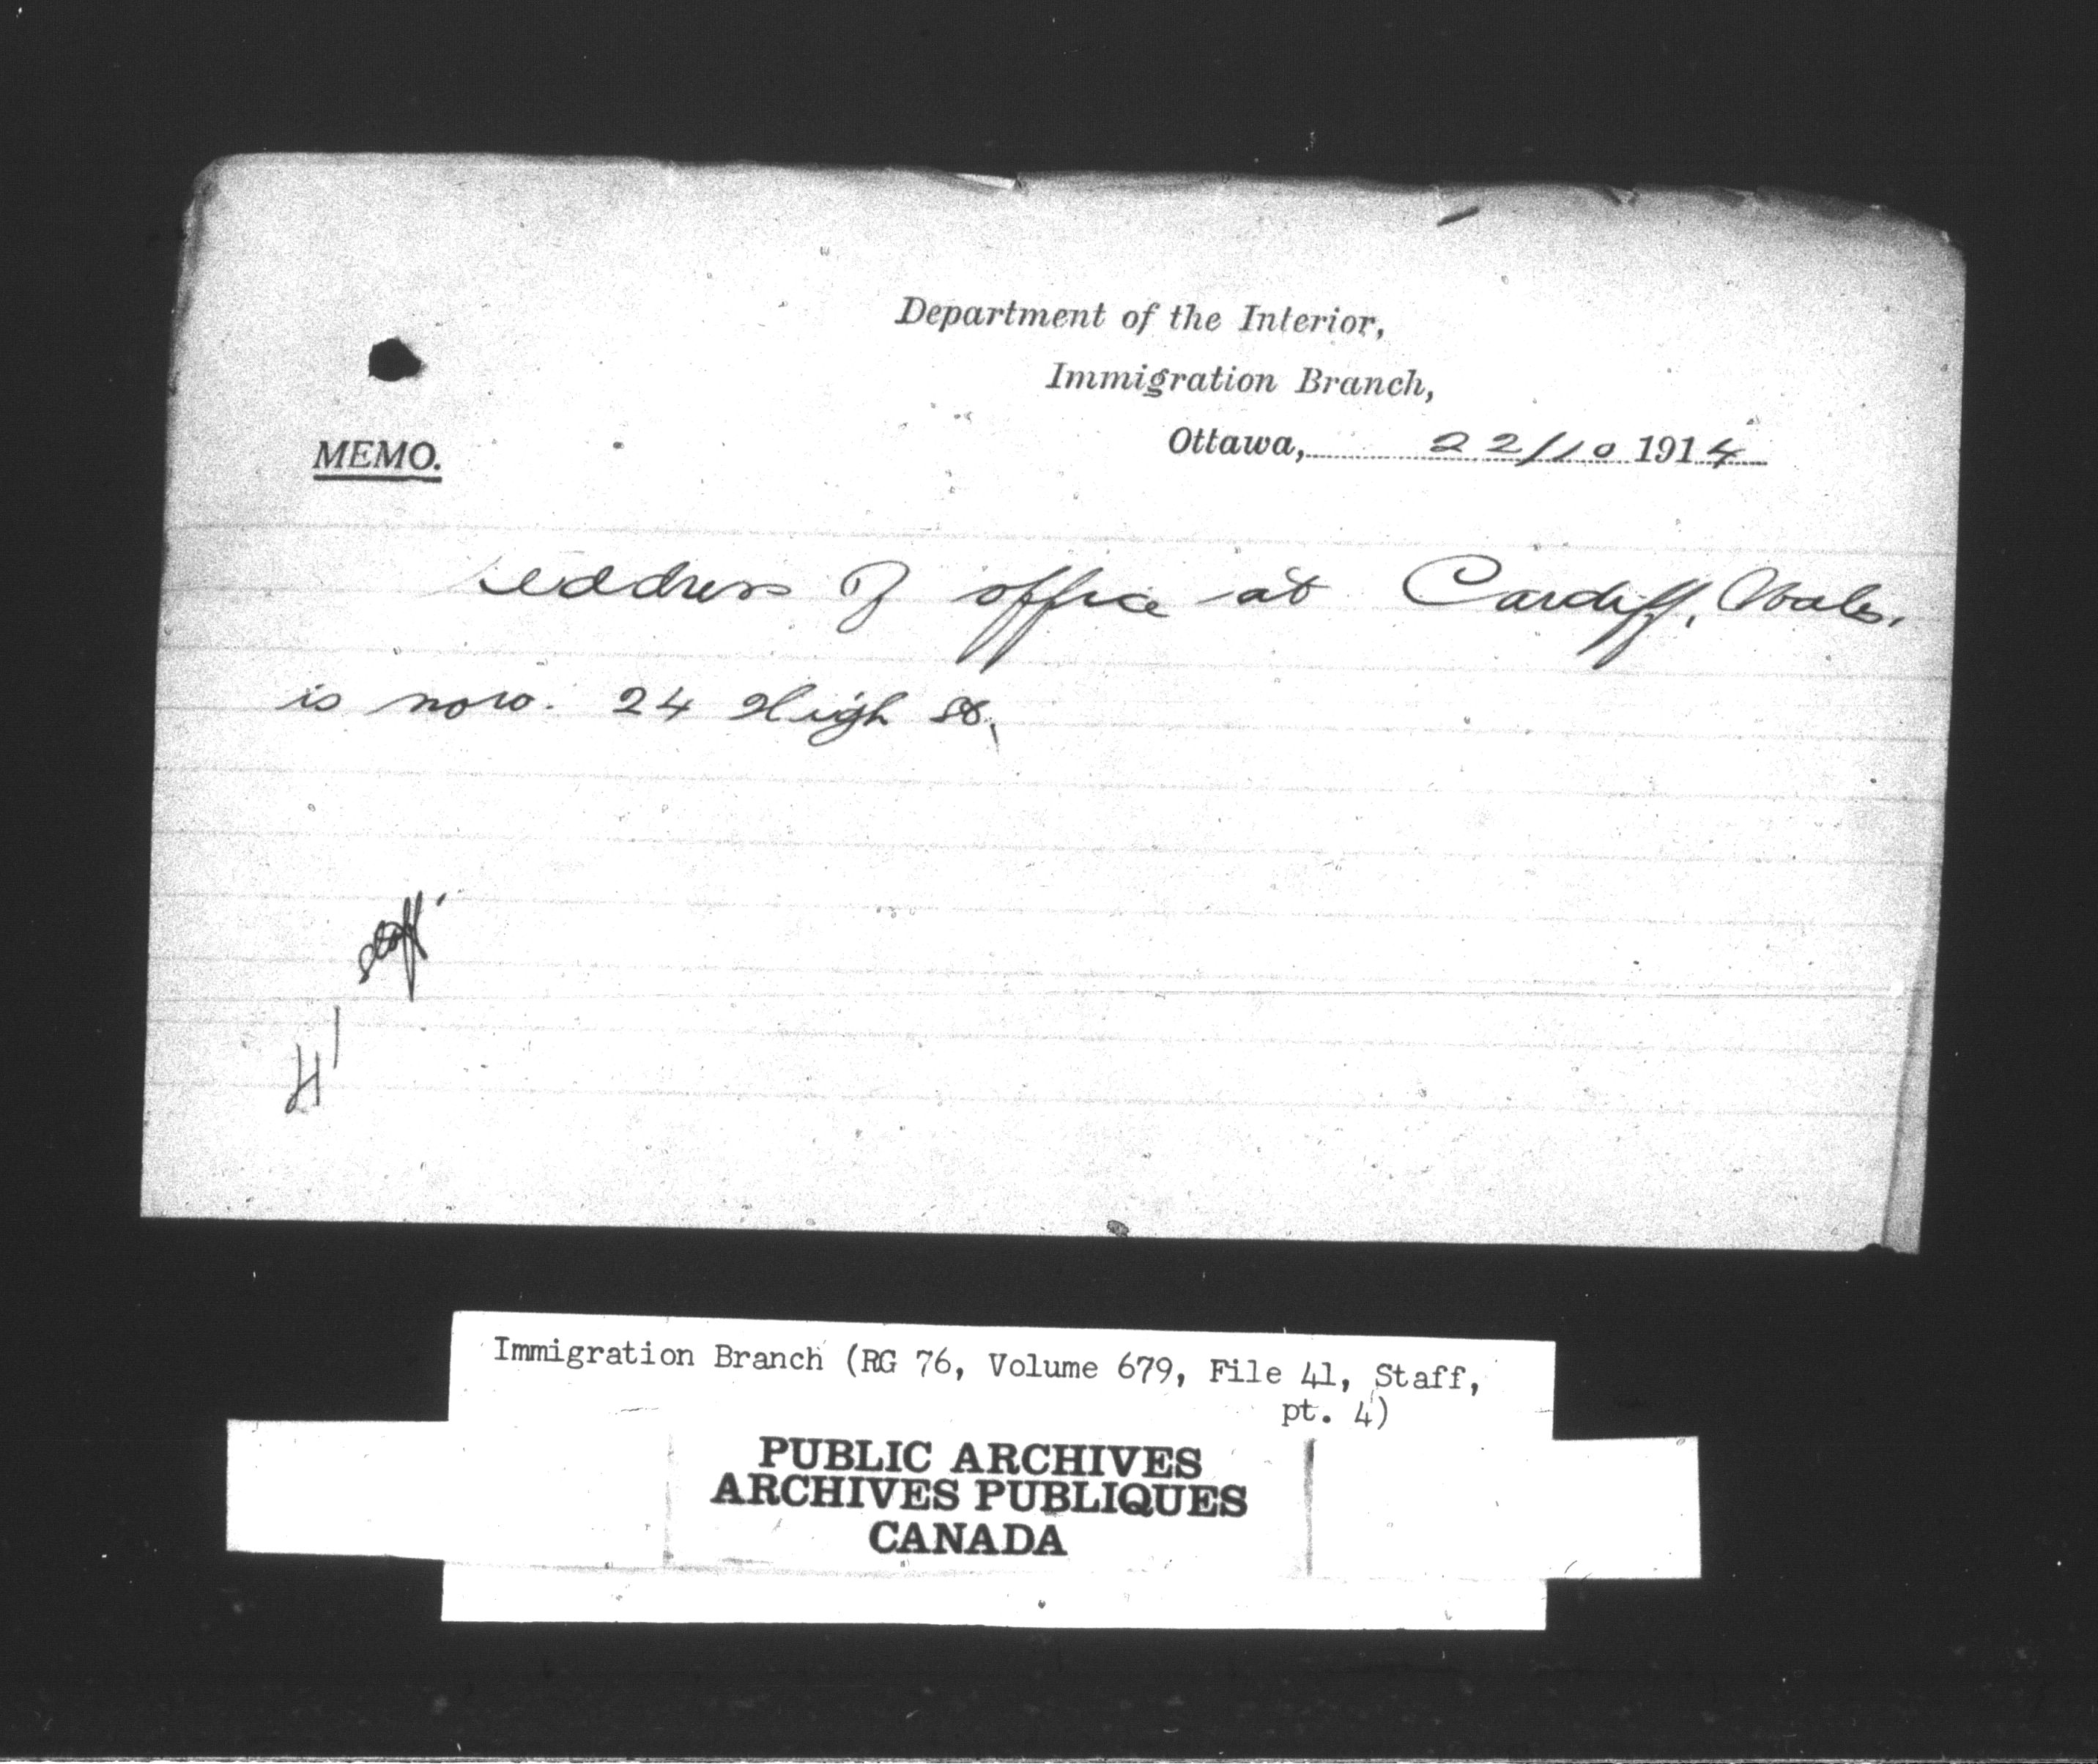 Department of the Interior,
Immigration Branch,
MEMO.
Ottawa, 22/10 1914
Address of office at Cardiff, Wales.
is now. 24 High St.
staff
41
Immigration Branch (RG 76, Volume 679, File 41, Staff,
pt. 4)
PUBLIC ARCHIVES
ARCHIVES PUBLIQUES
CANADA